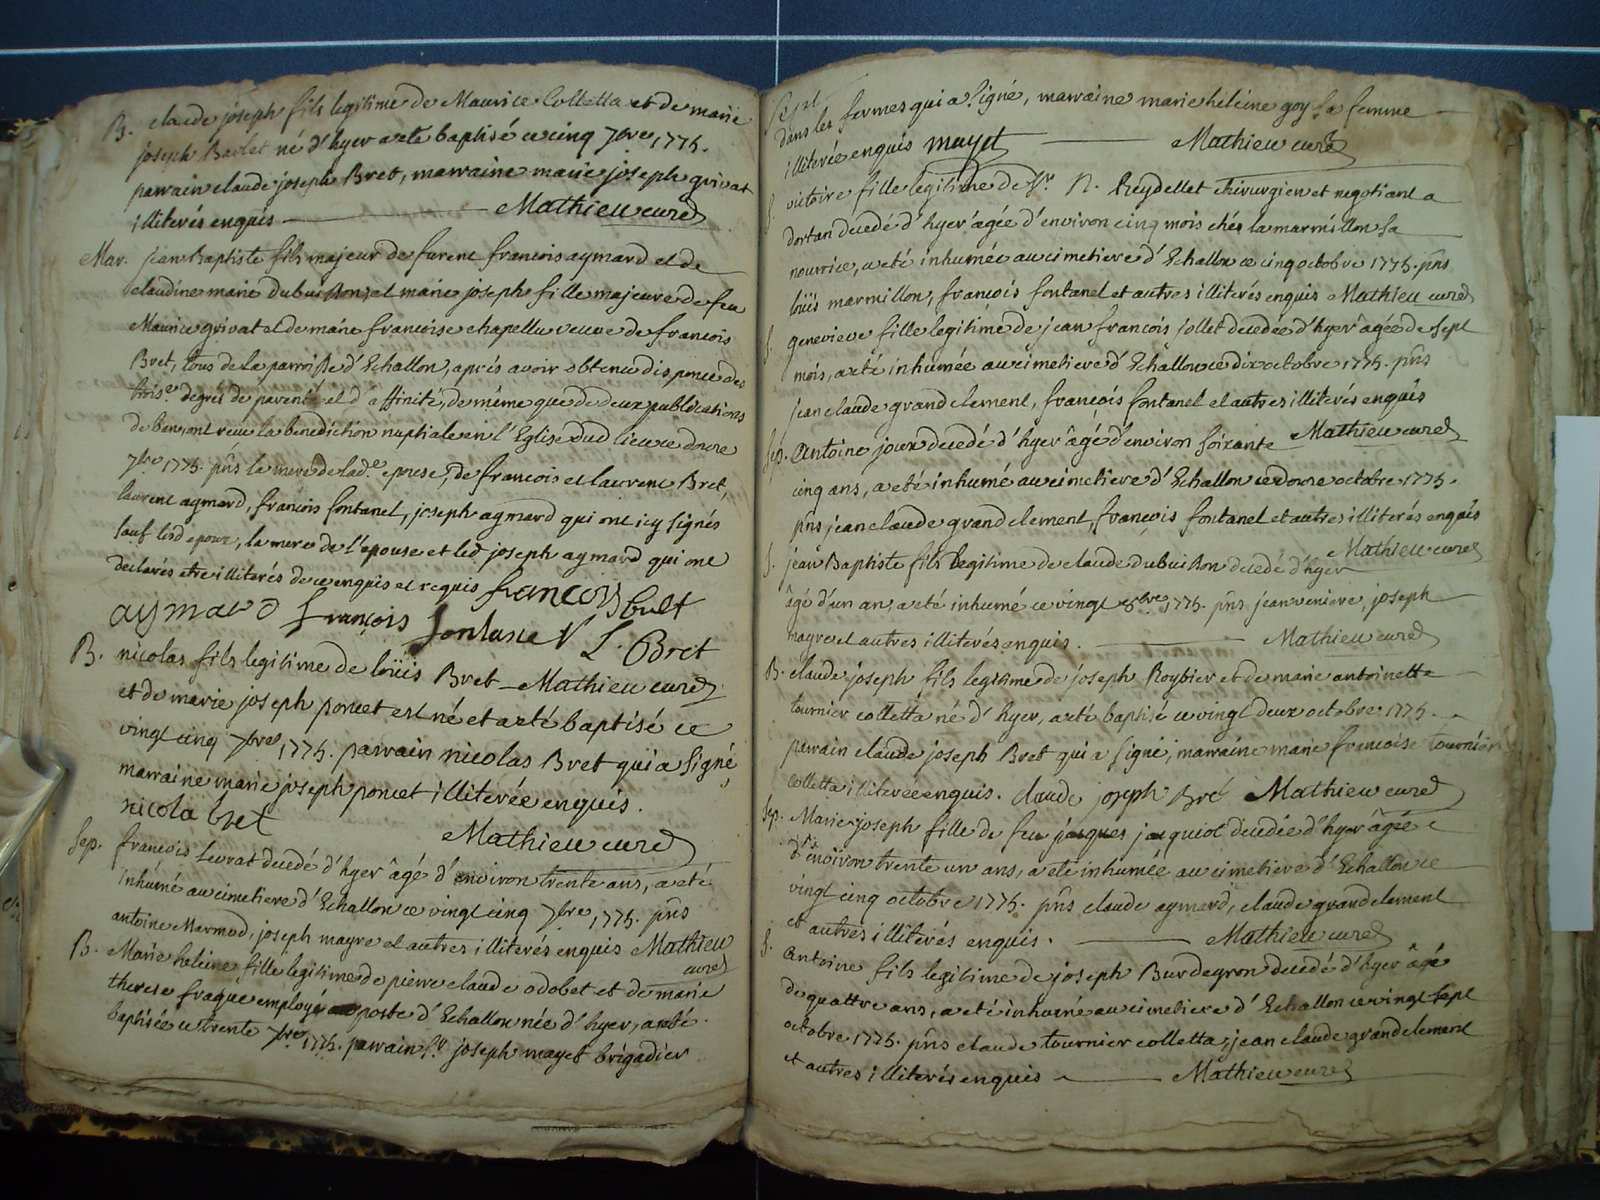 B. claude joseph fils legitime de Maurice Colletta et de marie
joseph Barlet né d'hyer a eté baptisé ce cinq 7bre 1775.
parrain claude joseph Bret, marraine marie joseph grivat
illiterés enquis Mathieu curé
Mar. jean Baptiste fils majeur de furent francois aymard et de
claudine marie dubuisson, et marie joseph fille majeure de feu
Maurice grivat et de marie francoise chapellu veuve de francois
Bret, tous de la parroisse d'Echallon, aprés avoir obtenu dispence des
trois.e degrés de parenté et d'affinité, de méme que de deux publications
de ban, ont recu la benediction nuptiale en l'Eglise dud lieu ce douze
7bre 1775. pñs la mere de lad.e epouse, de francois et laurent Bret,
laurent aymard, francois fontanel, joseph aymard qui ont icy signés
sauf lesd epoux, la mere de l'epouse et led joseph aymard qui ont
declarés etre illiterés de ce enquis et requis francois brett
aymard françois fontanel L. Bret
B. nicolas fils legitime de loüis Bret Mathieu curé
et de marie joseph poncet est né et a eté baptisé ce
vingt cinq 7bre 1775. parrain nicolas Bret qui a signé,
marraine marie joseph poncet illiterée enquis.
nicola bret Mathieu curé
Sep. francois levrat decedé d'hyer âgé d'environ trente ans, a eté
inhumé au cimetiere d'Echallon ce vingt cinq 7bre 1775. pñs
antoine Marmod, joseph mayre et autres illiterés enquis Mathieu
curé
B. Marie heleine fille legitime de pierre claude odobet et de marie
therese fraque employé au poste d'Echallon née d'hyer, a eté
baptisée ce trente 7bre 1775. parrain Sr joseph mayet brigadier
dans les fermes qui a signé, marraine marie heleine goy sa femme
illiterée enquis mayet Mathieu curé
Sept.
S. victoire fille legitime de Sr N. Reydellet chirurgien et negotiant a
dortan decedé d'hyer âgée d'environ cinq mois chés la marmillon sa
nourrice, a eté inhumée au cimetiere d'Echallon ce cinq octobre 1775. pñs
loüis marmillon, francois fontanel et autres illiterés enquis Mathieu curé
S. genevieve fille legitime de jean francois jollet decedée d'hyer âgée de sept
mois, a eté inhumée au cimetiere d'Echallon ce dix octobre 1775. pñs
jean claude grandclement, francois fontanel et autres illiterés enquis
Mathieu curé
Sep. Antoine joux decedé d'hyer âgé d'environ soixante
cinq ans, a eté inhumé au cimetiere d'Echallon ce douze octobre 1775.
pñs jean claude grandclement, francois fontanel et autres illiterés enquis
Mathieu curé
S. jean Baptiste fils legitime de claude dubuisson decedé d'hyer
âgé d'un an, a eté inhumé ce vingt 8bre 1775. pñs jean veniere, joseph
mayre et autres illiterés enquis. Mathieu curé
B. claude joseph fils legitime de joseph Roybier et de marie antoinette
tournier colletta né d'hyer, a eté baptisé ce vingt deux octobre 1775.
parrain claude joseph Bret qui a signé, marraine marie francoise tournier
colletta illiterée enquis. claude joseph Bré Mathieu curé
Sep. Marie joseph fille de feu jacques jacquiot decedée d'hyer âgée
d'environ trente un ans, a eté inhumée au cimetiere d'Echallon ce
vingt cinq octobre 1775. pñs claude aymard, claude grandclement
et autres illiterés enquis. Mathieu curé
S. Antoine fils legitime de joseph Burdegron decedé d'hyer âgé
de quattre ans, a eté inhumé au cimetiere d'Echallon ce vingt sept
octobre 1775. pñs claude tournier colletta, jean claude grandclement
et autres illiterés enquis Mathieu curé